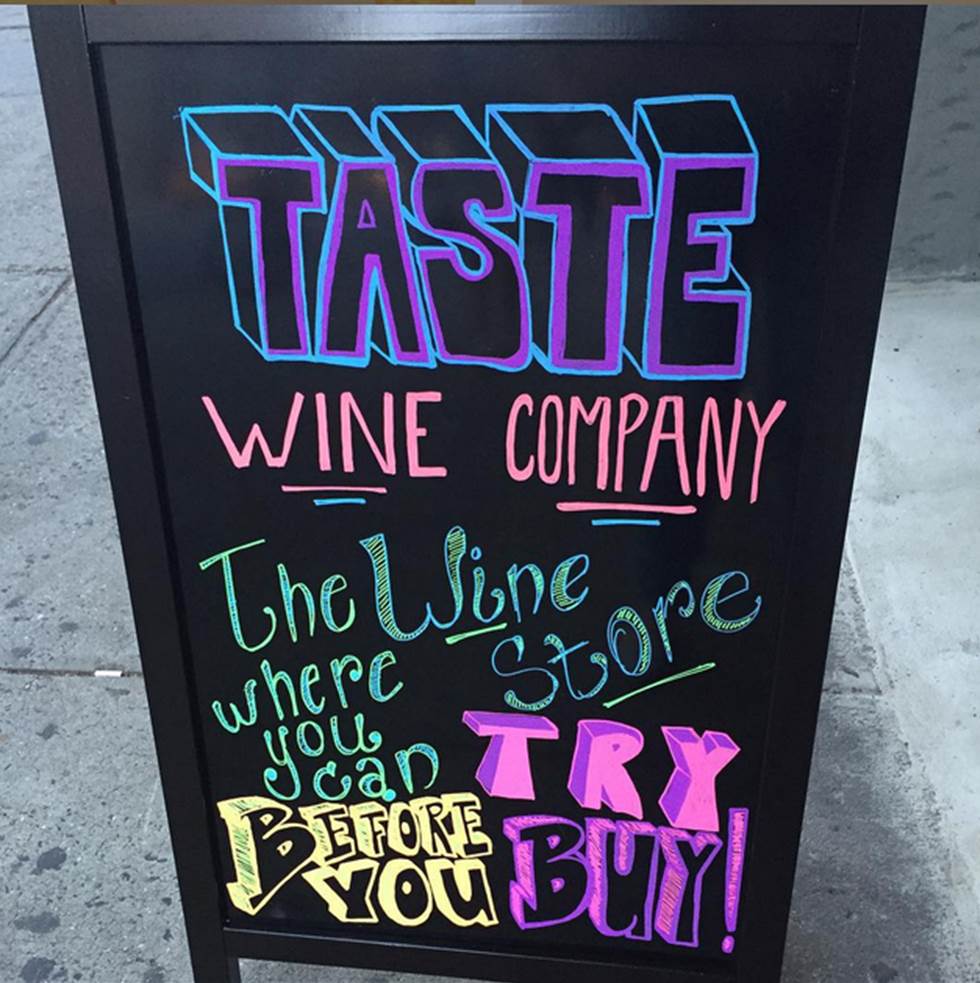 TASTE
WINE COMPANY
The Wine
Store
where
you
can TRY
BEFORE
YOU BUY!